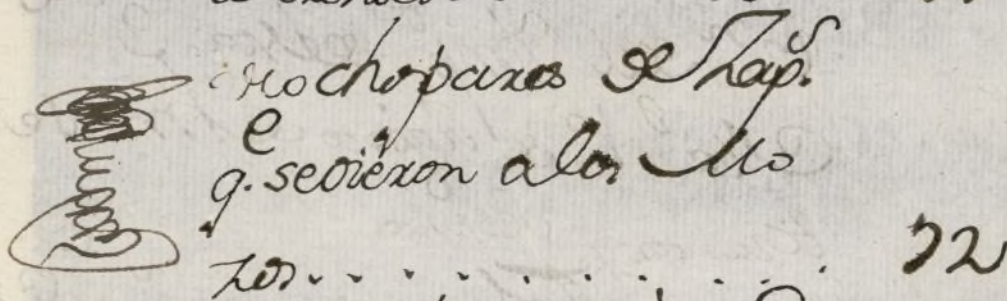 ocho pares de Zap.s
q.e se dieron a los Mo
zos........ 72